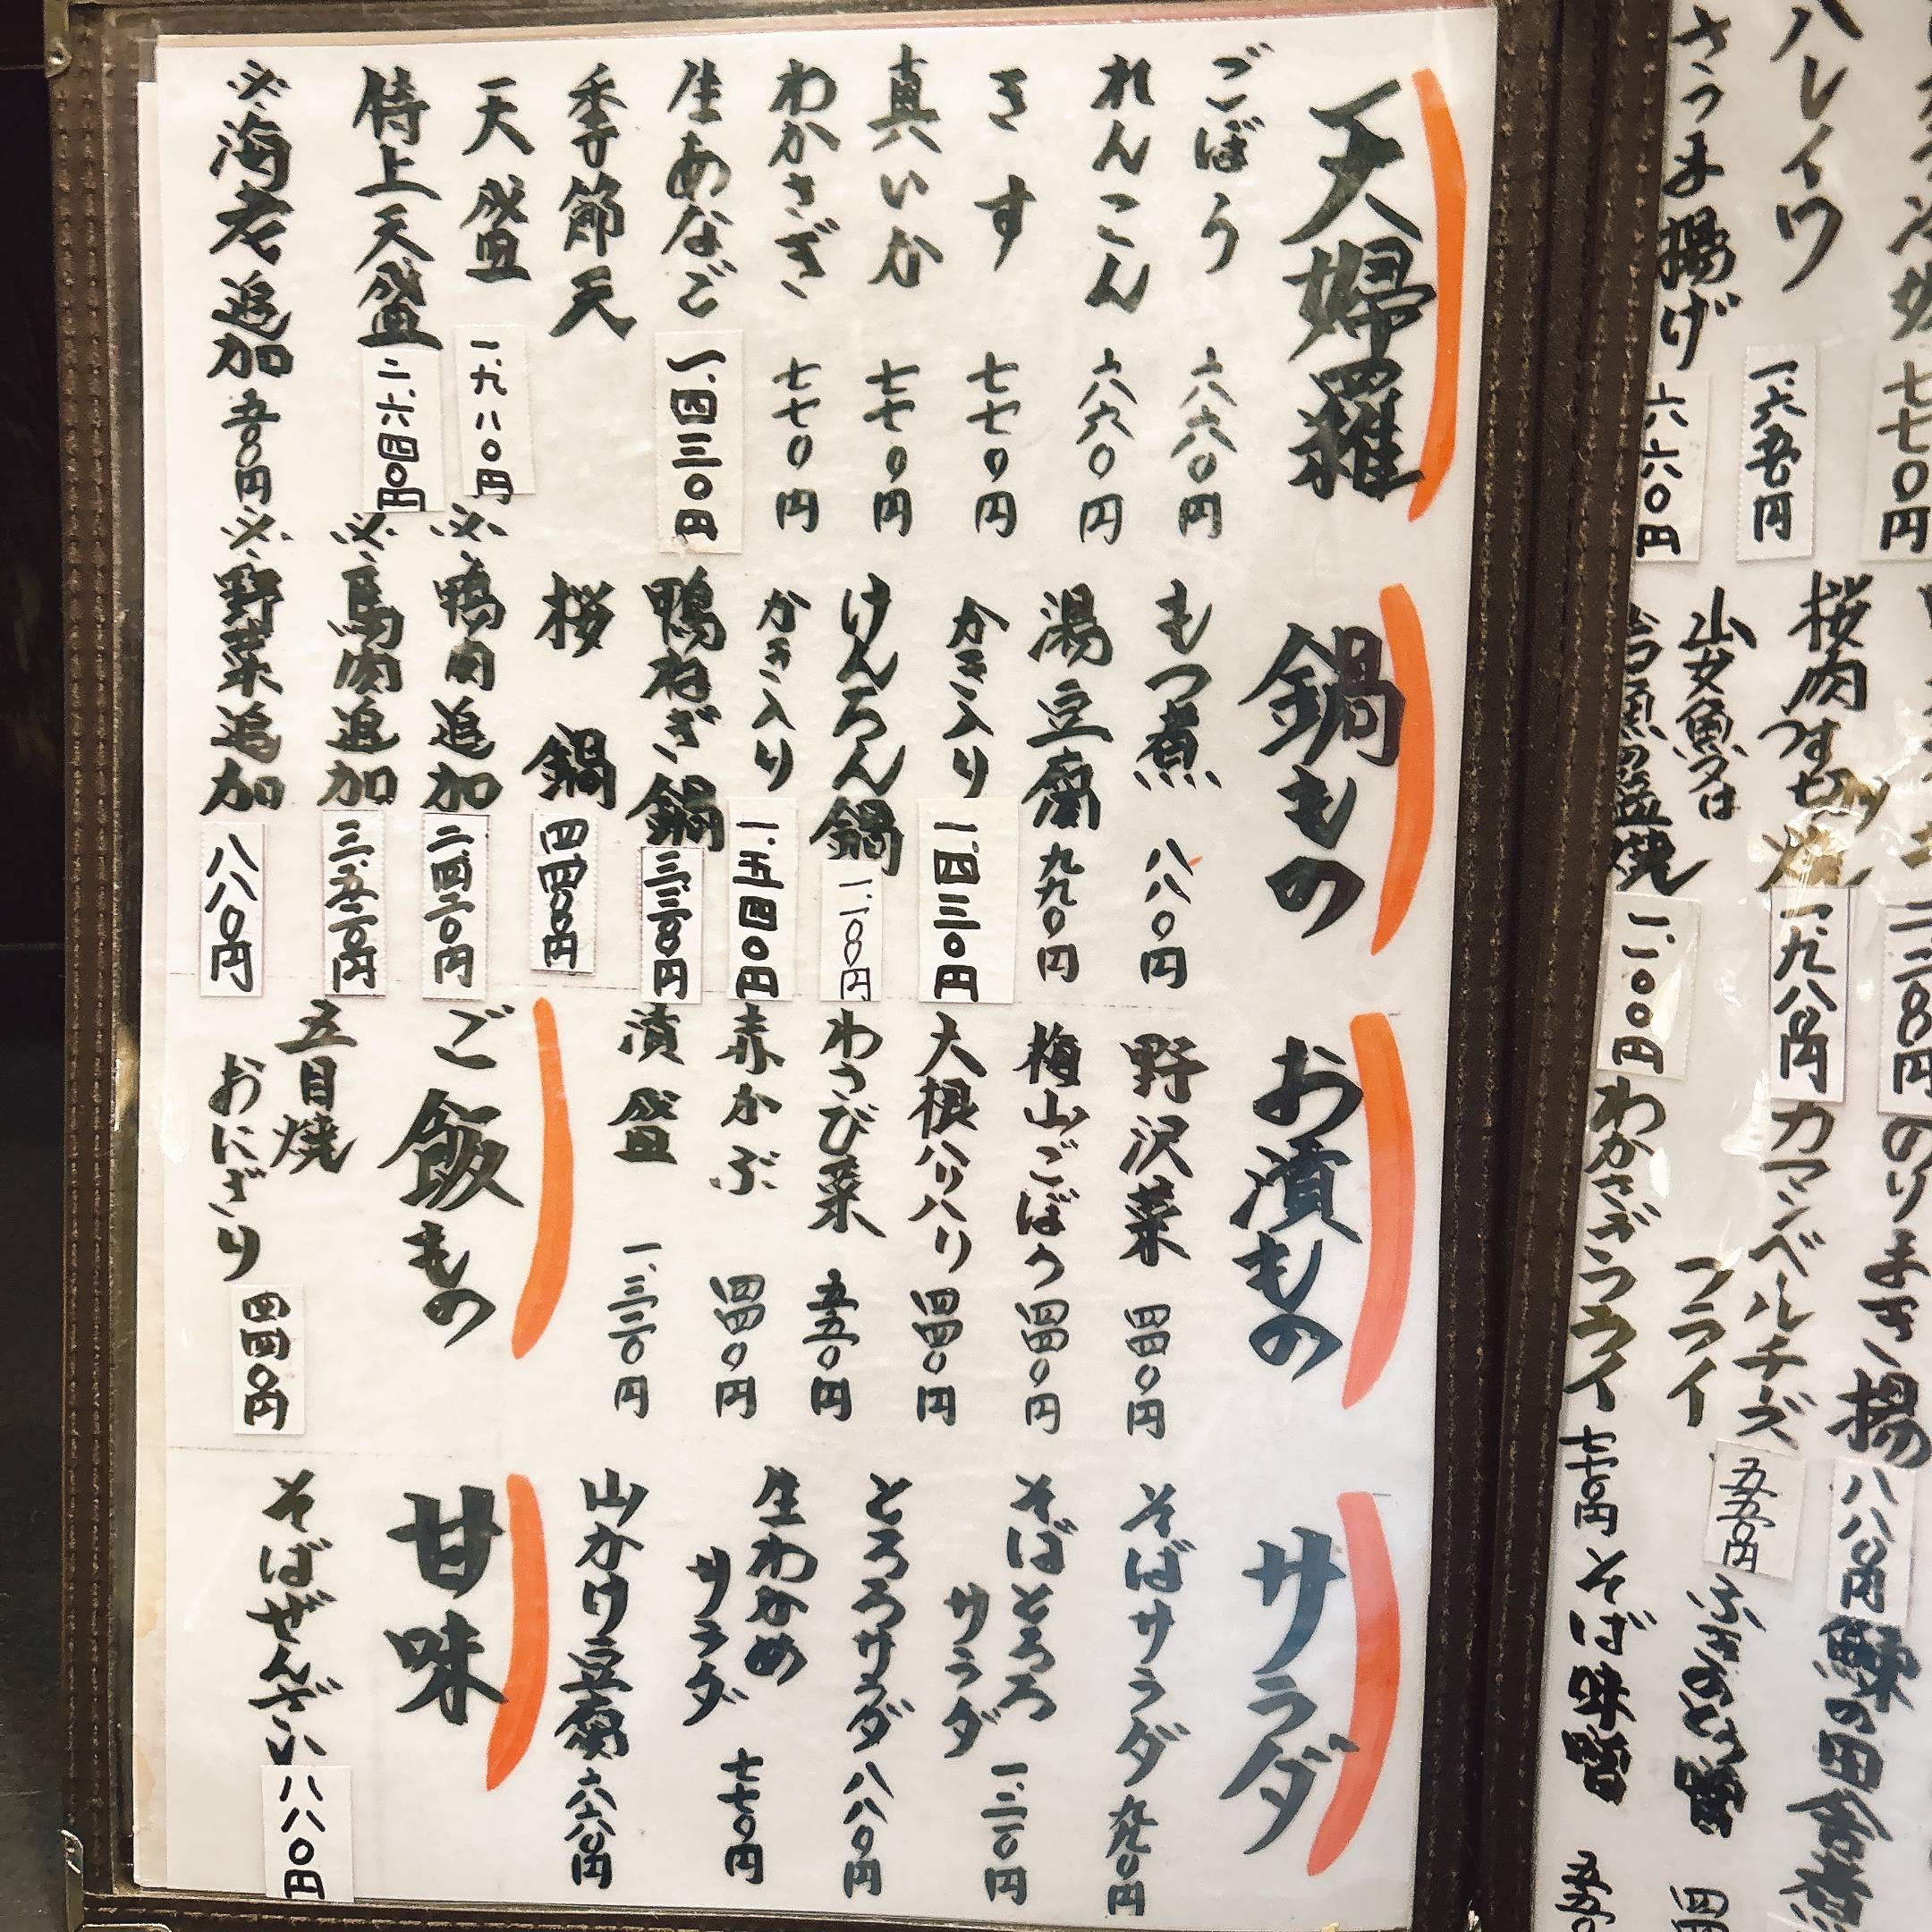 天婦羅
ごぼう 六六〇円
れんこん 六六〇円
きす 七七〇円
真いか 七七〇円
わかさぎ 七七〇円
生あなご 一、四三〇円
季節天
天盛 一、九八〇円
特上天盛 二、六四〇円
※海老追加 五五〇円
鍋もの
もつ煮 八八〇円
湯豆腐 九九〇円
かき入り 一、四三〇円
けんちん鍋 一、一〇〇円
かき入り 一、五四〇円
鴨ねぎ鍋 三、三〇〇円
桜鍋 四四〇〇円
※鴨肉追加 二、四二〇円
※馬肉追加 三、五二〇円
※野菜追加 八八〇円
お漬もの
野沢菜 四四〇円
梅山ごぼう 四四〇円
大根ハリハリ 四四〇円
わさび菜 五五〇円
赤かぶ 四四〇円
漬盛 一、三二〇円
ご飯もの
五目焼
おにぎり 四四〇円
サラダ
そばサラダ 九九〇円
そばとろろ
サラダ 一、二一〇円
とろろサラダ 八八〇円
生わかめ
サラダ 七七〇円
山かけ豆腐 六六〇円
甘味
そばぜんざい 八八〇円
七七〇円
ハレイワ 一、六五〇円
さつま揚げ 六六〇円
桜肉つすせり
焼 一、九八〇円
山女魚又は
岩魚の塩焼 一、一〇〇円
のりまき揚 八八〇円
カマンベールチーズ
フライ 五五〇円
わかさぎフライ 七七〇円
鰊の田舎煮
そば味噌